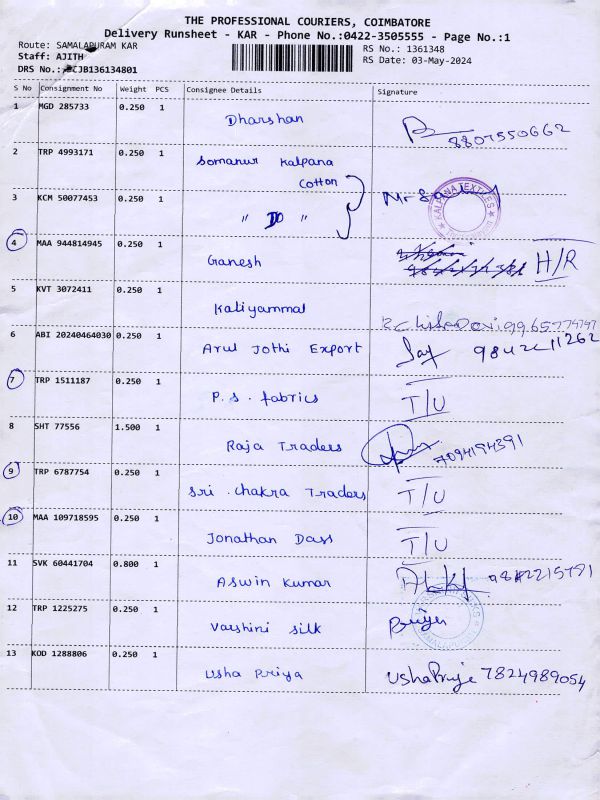 THE PROFESSIONAL COURIERS, COIMBATORE
Delivery Runsheet - KAR - Phone No.:0422-3505555 - Page No.:1
Route: SAMALAPURAM KAR
RS No.: 1361348
Staff: AJITH
RS Date: 03-May-2024
DRS No.: JB136134801
S No Consignment No Weight PCS Consignee Details Signature
1 MGD 285733 0.250 1 Dharshan 8807550662
2 TRP 4993171 0.250 1 Somanur Kalpana
Cotton
3 KCM 50077453 0.250 1 " DO " KALPANA TEXTILES
4 MAA 944814945 0.250 1 Ganesh H/R
5 KVT 3072411 0.250 1 Kaliyammal
6 ABI 20240464030 0.250 1 Arul Jothi Export
7 TRP 1511187 0.250 1 P.S. fabrics T/U
8 SHT 77556 1.500 1 Raja Traders 7094194391
9 TRP 6787754 0.250 1 Sri Chakra Traders T/U
10 MAA 109718595 0.250 1 Jonathan Dass T/U
11 SVK 60441704 0.800 1 Aswin Kumar
12 TRP 1225275 0.250 1 Varshini Silk Priya
13 KOD 1288806 0.250 1 Usha Priya UshaPriya 7824989054